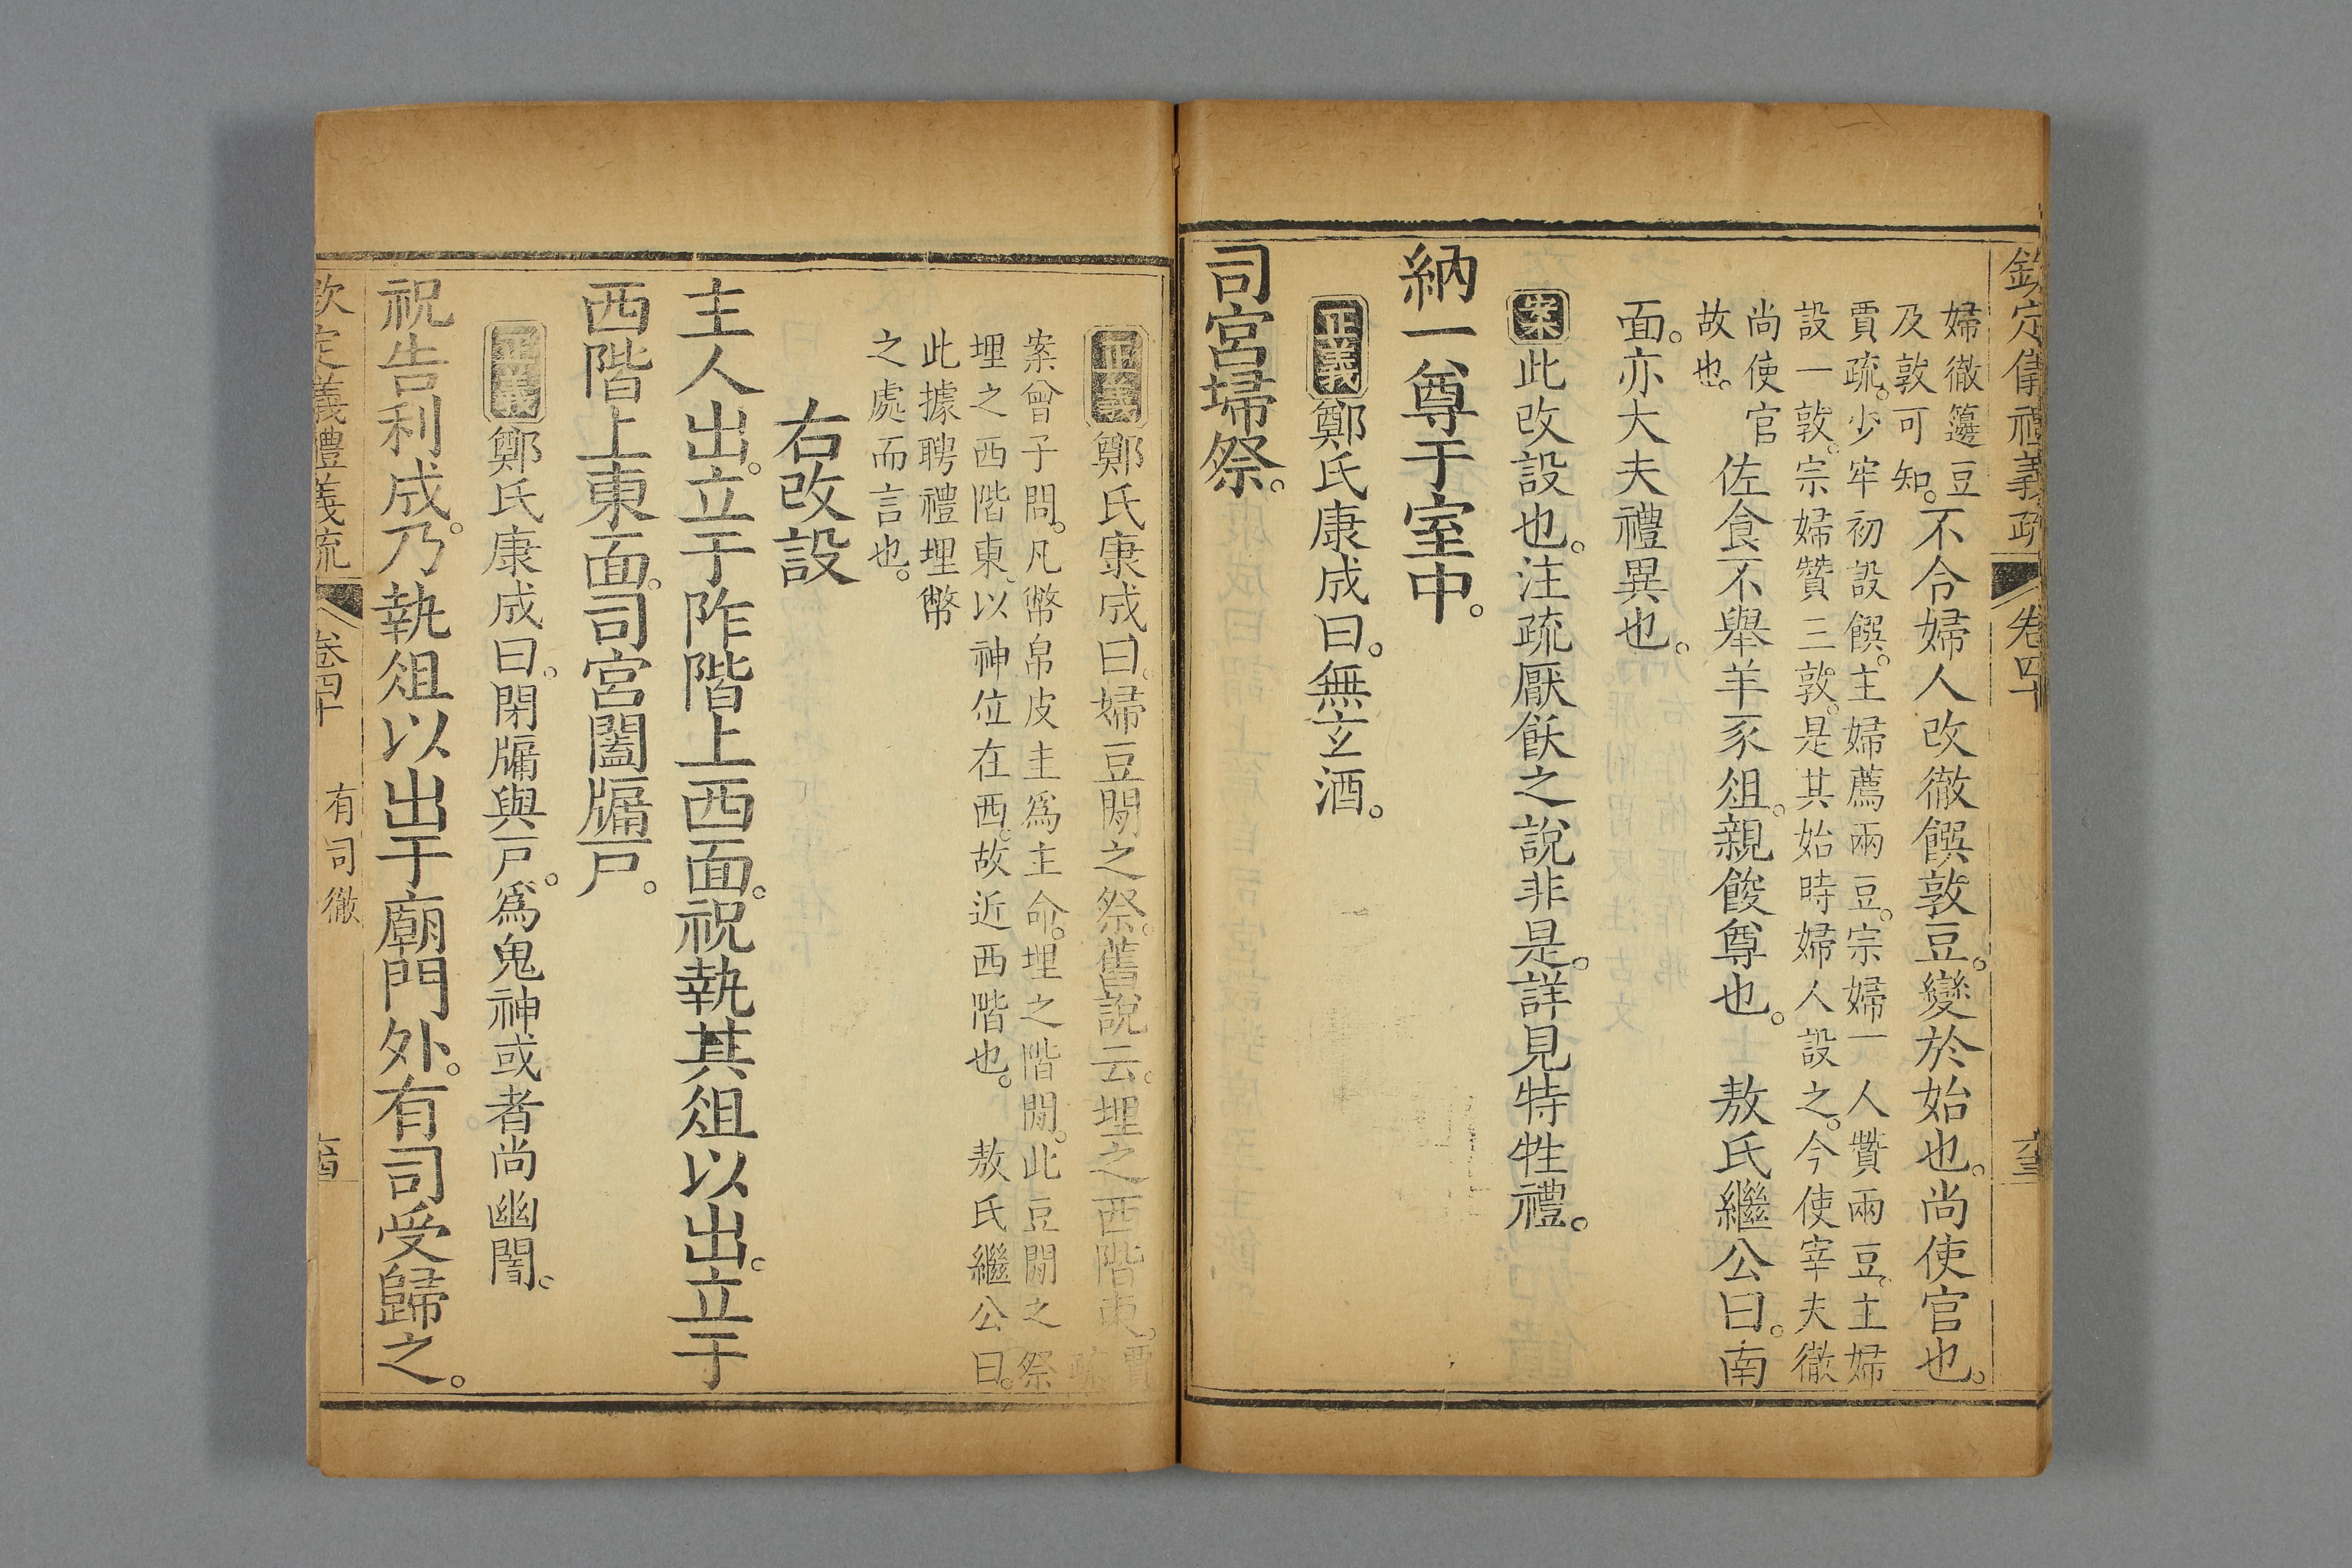 欽定儀禮義疏 卷四十 六三
婦徹籩豆
及敦可知。不令婦人改徹饌敦豆。變於始也。尚使官也。
賈疏。少牢初設饌。主婦薦兩豆。宗婦一人贊兩豆。主婦
設一敦。宗婦贊三敦。是其始時婦人設之。今使宰夫徹
尚使官
故也。佐食不舉羊豕俎。親餕尊也。 敖氏繼公曰。南
面。亦大夫禮異也。
案此改設也。注疏厭飫之說非是。詳見特牲禮。
納一尊于室中。
正義鄭氏康成曰。無玄酒。
司宮埽祭。
正義鄭氏康成曰。婦豆閒之祭。舊說云。埋之西階東。賈疏
案曾子問。凡幣帛皮主爲主命。埋之階閒。此豆閒之祭
埋之西階東、以神位在西。故近西階也。 敖氏繼公曰。
此據聘禮埋幣
之處而言也。
右改設
主人出。立于阼階上西面。祝執其俎以出。立于
西階上東面。司宮闔牖戸。
正義鄭氏康成曰。閉牖與戸。爲鬼神或者尚幽闇。
祝告利成。乃執俎以出于廟門外。有司受歸之。
欽定儀禮義疏 卷四十 有司徹